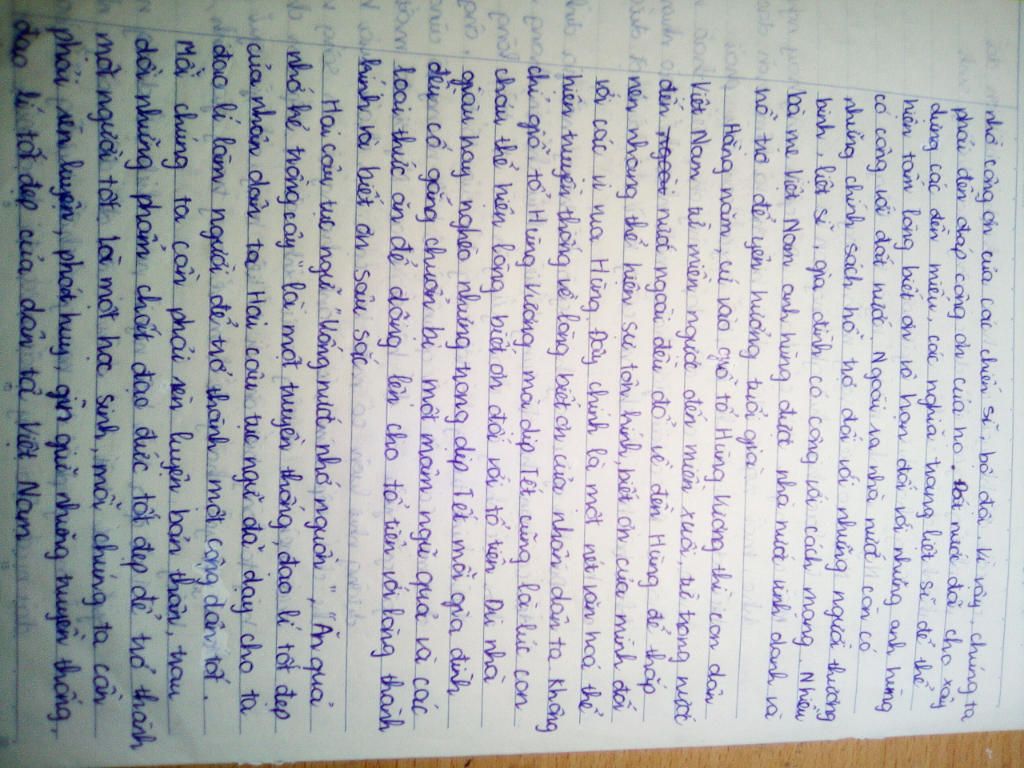 nhớ công ơn của các chiến sĩ, bộ đội. Vì vậy, chúng ta
phải đền đáp công ơn của họ. nước đã cho xây
dựng các đền miếu, các nghĩa trang liệt sĩ để thể
hiện tấm lòng biết ơn vô hạn đối với những anh hùng
có công với đất nước. Ngoài ra nhà nước còn có
những chính sách hỗ trợ đối với những người thương
binh, liệt sĩ, gia đình có công với cách mạng. Nhiều
bà mẹ Việt Nam anh hùng được nhà nước vinh danh và
hỗ trợ để yên hưởng tuổi già.
Hằng năm, cứ vào giỗ tổ Hùng Vương thì con dân
Việt Nam từ miền ngược đến miền xuôi, từ trong nước
đến nước ngoài đều đổ về đền Hùng để thắp
nén nhang thể hiện sự tôn kính, biết ơn của mình đối
với các vị vua Hùng. Đây chính là một nét văn hoá thể
hiện truyền thống về lòng biết ơn của nhân dân ta. Không
chỉ giỗ tổ Hùng Vương mà dịp Tết cũng là lúc con
cháu thể hiện lòng biết ơn đối với tổ tiên. Dù nhà
giàu hay nghèo nhưng trong dịp Tết mỗi gia đình
đều cố gắng chuẩn bị một mâm ngũ quả và các
loại thức ăn để dâng lên cho tổ tiên với lòng thành
kính và biết ơn sâu sắc.
Hai câu tục ngữ "Uống nước nhớ nguồn", "Ăn quả
nhớ kẻ trồng cây là một truyền thống, đạo lí tốt đẹp
của nhân dân ta. Hai câu tục ngữ đã dạy cho ta
đạo lí làm người để trở thành một công dân tốt.
Mỗi chúng ta cần phải rèn luyện bản thân, trau
dồi những phẩm chất đạo đức tốt đẹp để trở thành
một người tốt. Là một học sinh, mỗi chúng ta cần
phải rèn luyện, phát huy, gìn giữ những truyền thống,
đạo lí tốt đẹp của dân tộc Việt Nam.